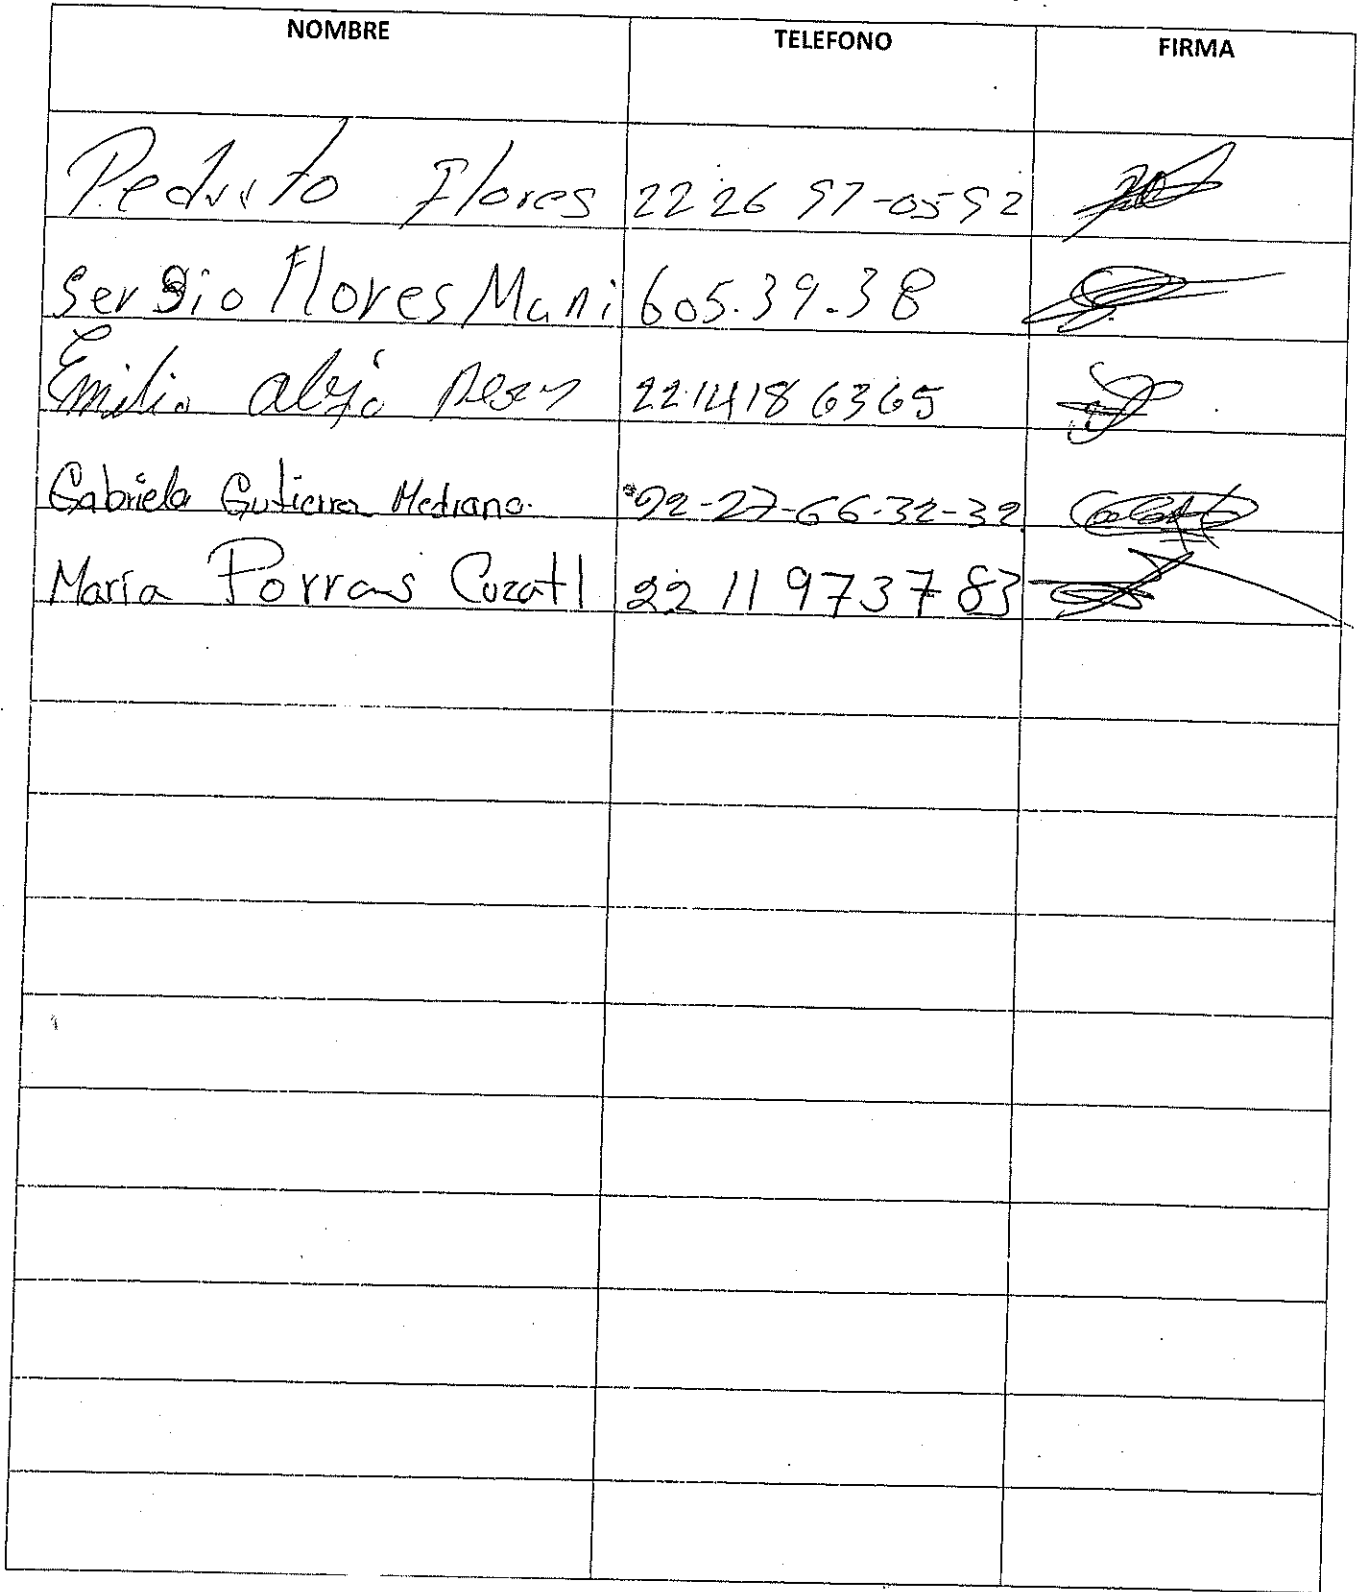 NOMBRE TELEFONO FIRMA
Pedrito Flores 22 26 97-0592
Sergio Flores Muni 605.39.38
Emilio alejo 22 14 18 6365
Gabriela Gutierrez Medrano. 22-27-66-32-32
María Porras Cuzatl 22 11 9737 83